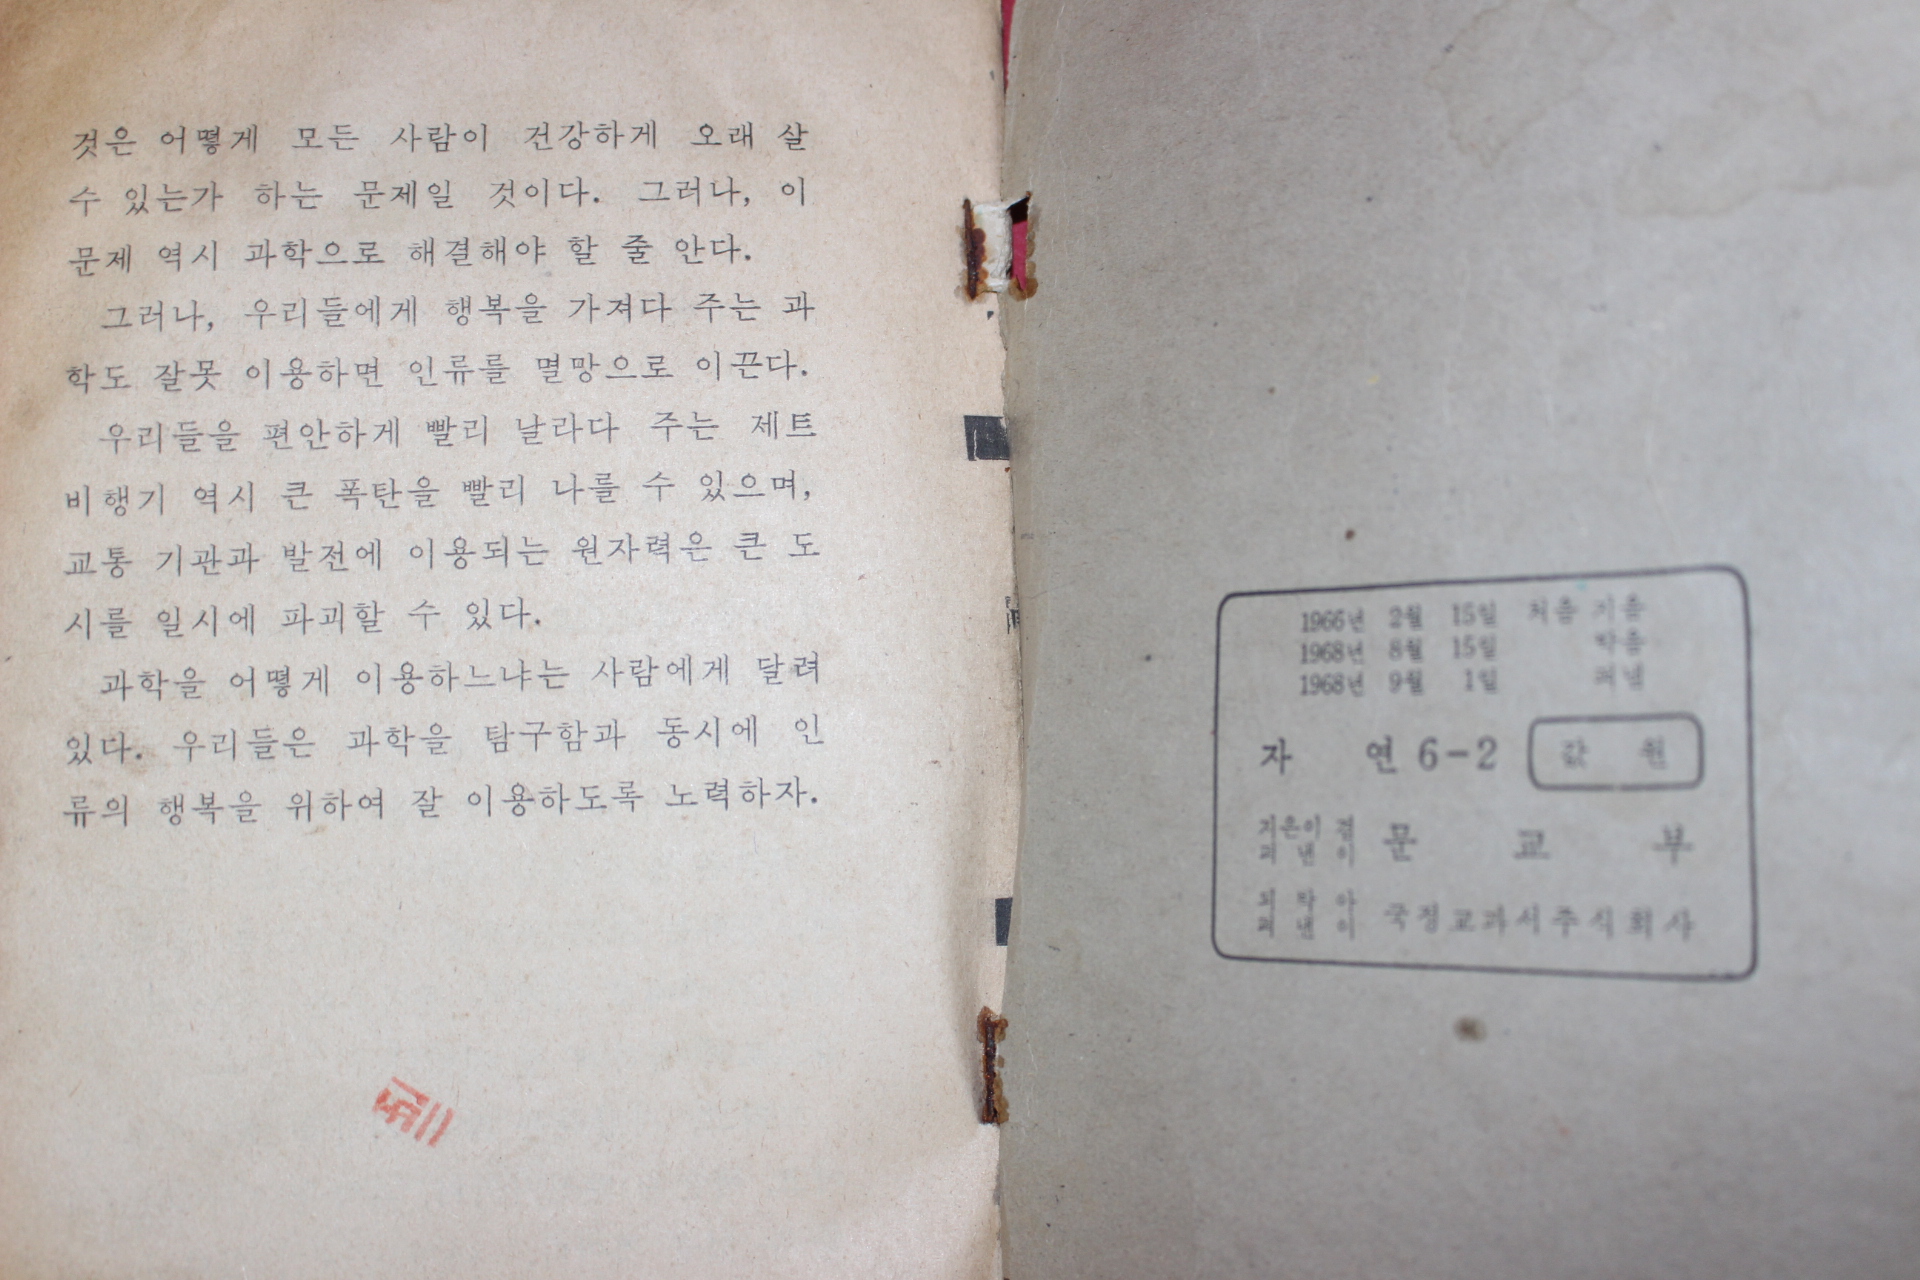 것은 어떻게 모든 사람이 건강하게 오래 살
수 있는가 하는 문제일 것이다. 그러나, 이
문제 역시 과학으로 해결해야 할 줄 안다.
그러나, 우리들에게 행복을 가져다 주는 과
학도 잘못 이용하면 인류를 멸망으로 이끈다.
우리들을 편안하게 빨리 날라다 주는 제트
비행기 역시 큰 폭탄을 빨리 나를 수 있으며,
교통 기관과 발전에 이용되는 원자력은 큰 도
시를 일시에 파괴할 수 있다.
과학을 어떻게 이용하느냐는 사람에게 달려
있다. 우리들은 과학을 탐구함과 동시에 인
류의 행복을 위하여 잘 이용하도록 노력하자.
1966년 2월 15일 처음 지음
1968년 8월 15일 박음
1968년 9월 1일 펴냄
자 연 6-2 값 원
지은이 겸
펴 낸 이 문 교 부
펴 낸 이 국정교과서주식회사